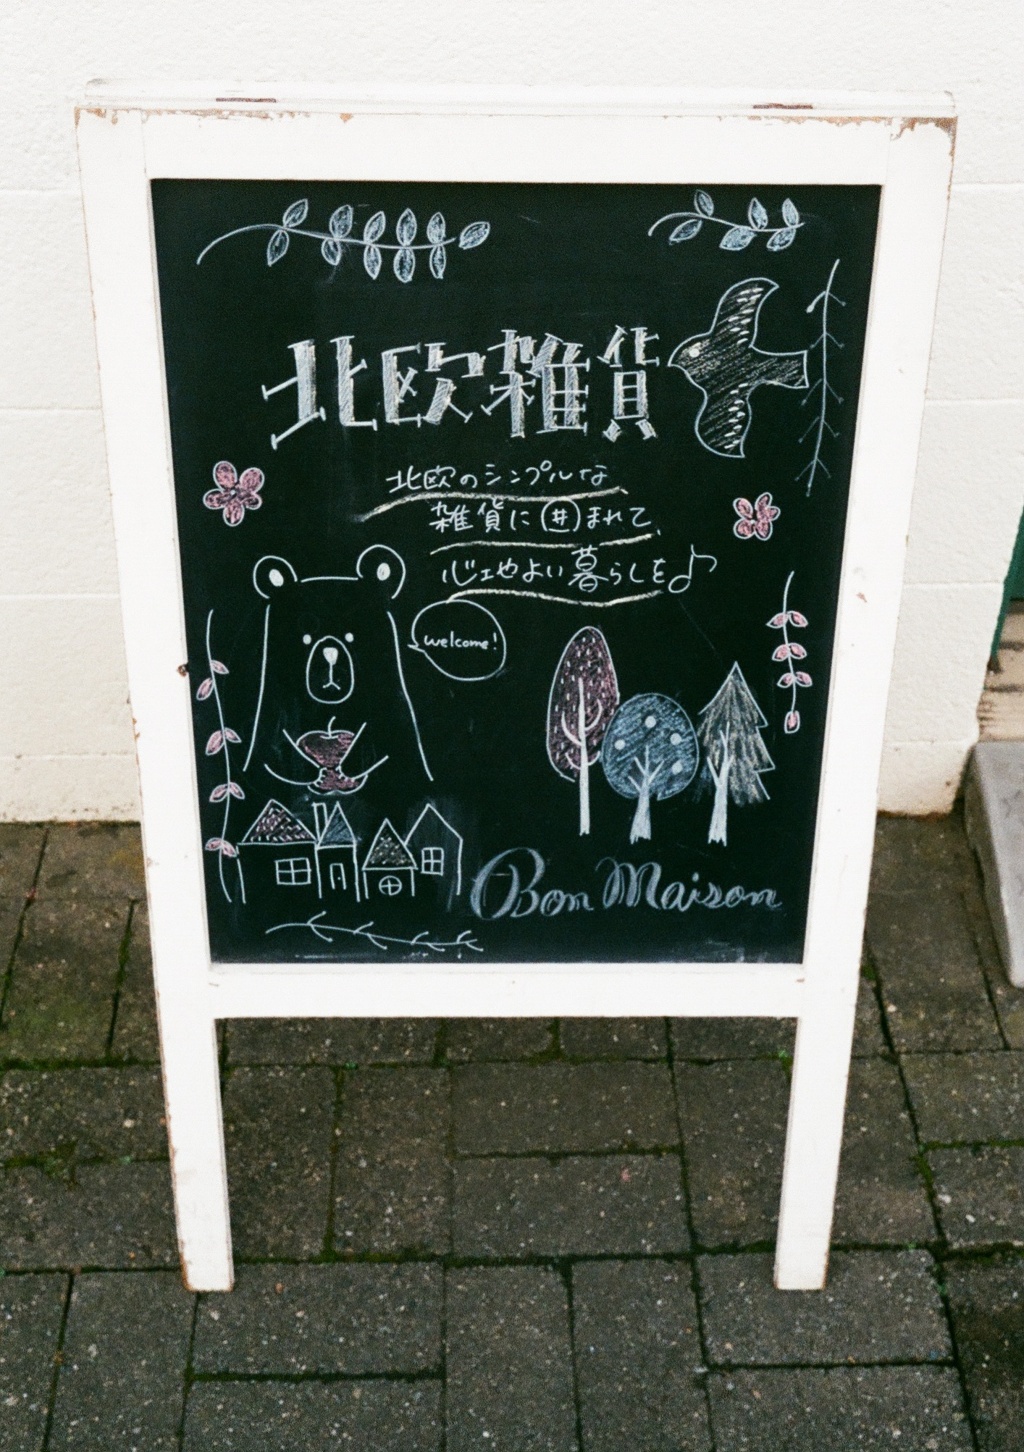 北欧雑貨
北欧のシンプルな
雑貨に囲まれて、
心地よい暮らしを♪
welcome!
Bon Maison